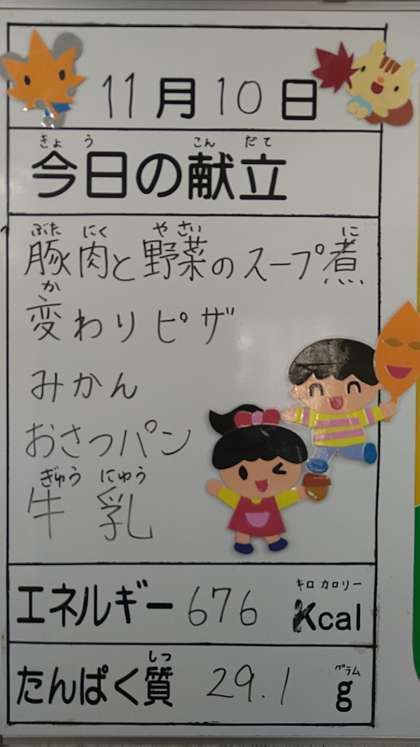 11月10日
きょう こんだて
今日の献立
ぶた にく や さい に
豚肉と野菜のスープ煮
か
変わりピザ
みかん
おさつパン
ぎゅう にゅう
牛乳
キロ カロリー
エネルギー 676 Kcal
しつ グラム
たんぱく質 29.1 g